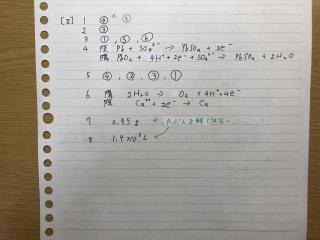 [II] 1 ④ × ⑤
2 ③
3 ①, ⑤, ⑥
4 陰 Pb + SO₄²⁻ → PbSO₄ + 2e⁻
陽 PbO₂ + 4H⁺ + 2e⁻ + SO₄²⁻ → PbSO₄ + 2H₂O
5 ④, ②, ③, ①
6 陽 2H₂O → O₂ + 4H⁺ + 4e⁻
陰 Cu²⁺ + 2e⁻ → Cu
7 0.95 g
8 1.9×10 L